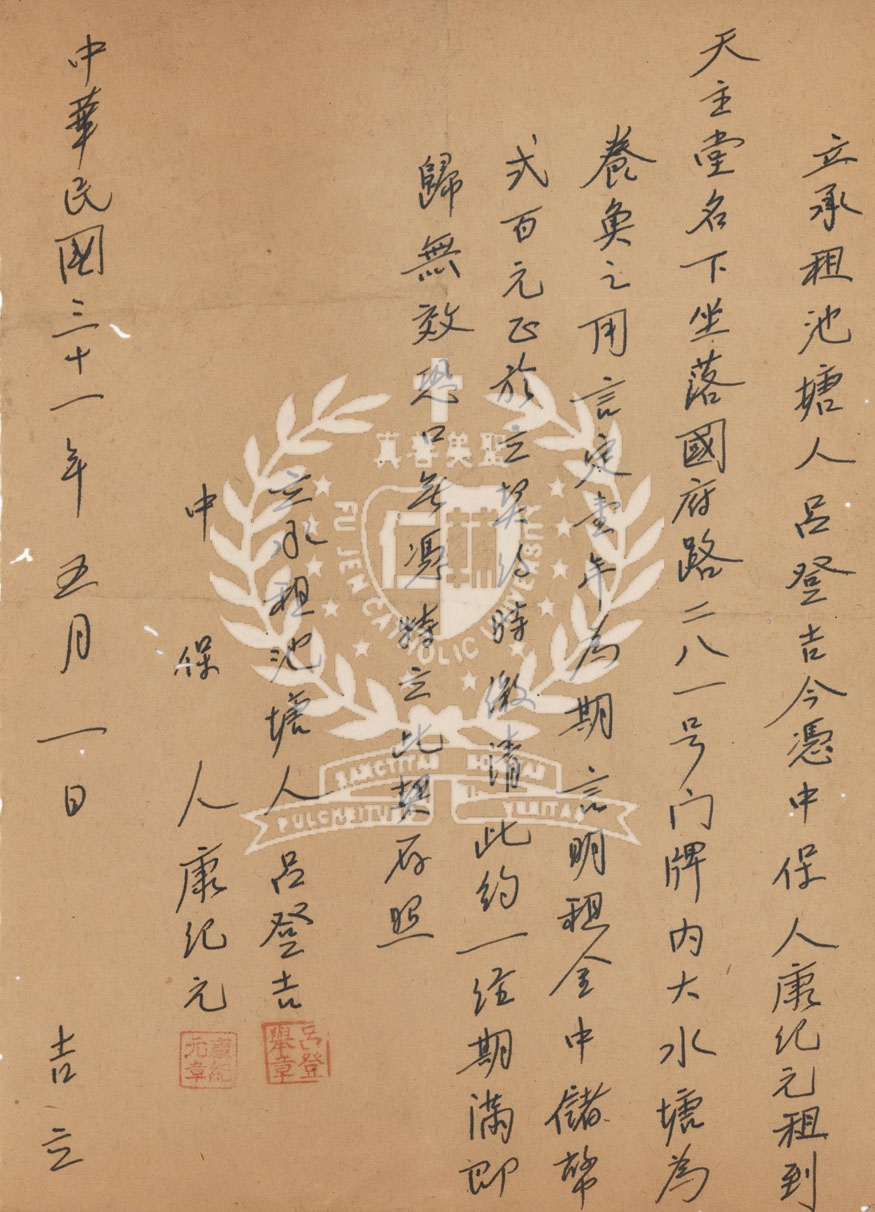 立承租池塘人呂登吉今憑中保人康紀元租到
天主堂名下坐落國府路二八一号门牌内大水塘為
養魚之用言定壹年為期言明租金中儲幣
弍百元正於立契约時缴清此約一经期滿即
歸無效恐口無憑特立此契存照
立承租池塘人呂登吉
呂登舉章
中保人康紀元
康紀元章
中華民國三十一年五月一日 吉立
真善美聖
FU JEN CATHOLIC UNIVERSITY
SANCTITAS BONITAS
PULCHRITUDO VERITAS